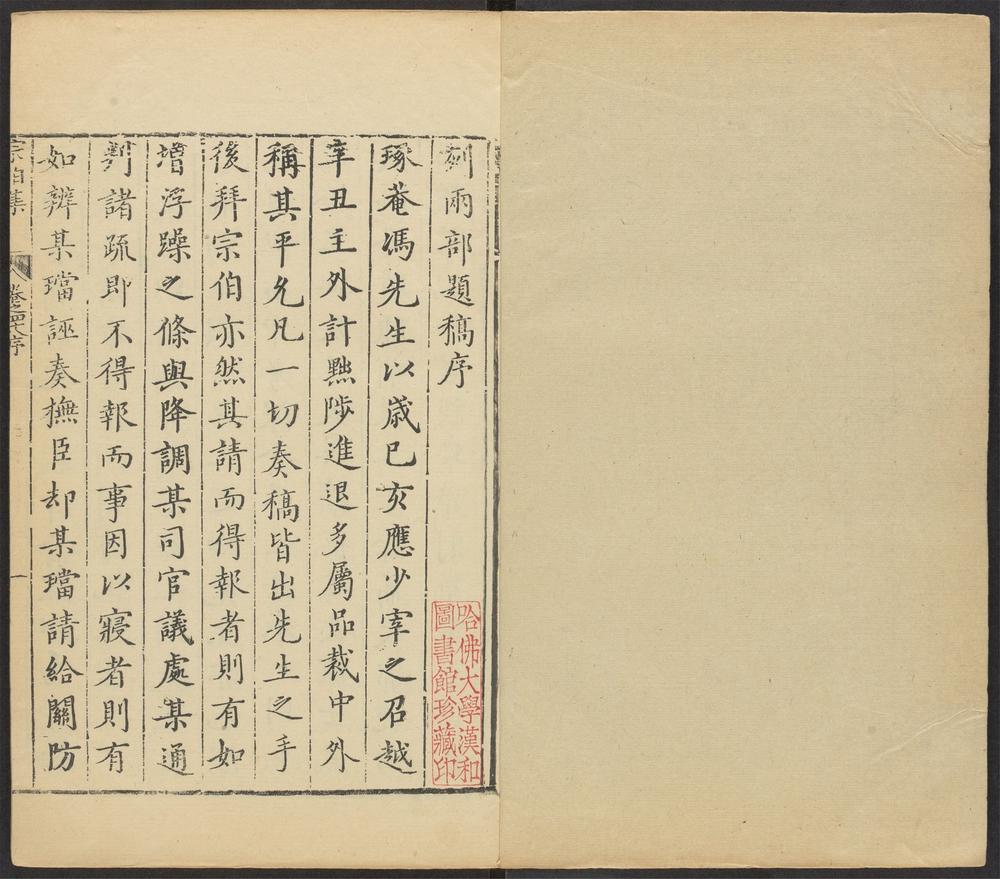 刻兩部題稿序
哈佛大學漢和
圖書館珍藏印
琢菴馮先生以歲已亥應少宰之召越
辛丑主外計黜陟進退多屬品裁中外
稱其平允凡一切奏稿皆出先生之手
後拜宗伯亦然其請而得報者則有如
增浮躁之條與降調某司官議處某通
判諸疏即不得報而事因以寢者則有
如辨某璫誣奏撫臣却某璫請給關防
宗伯集
序
一